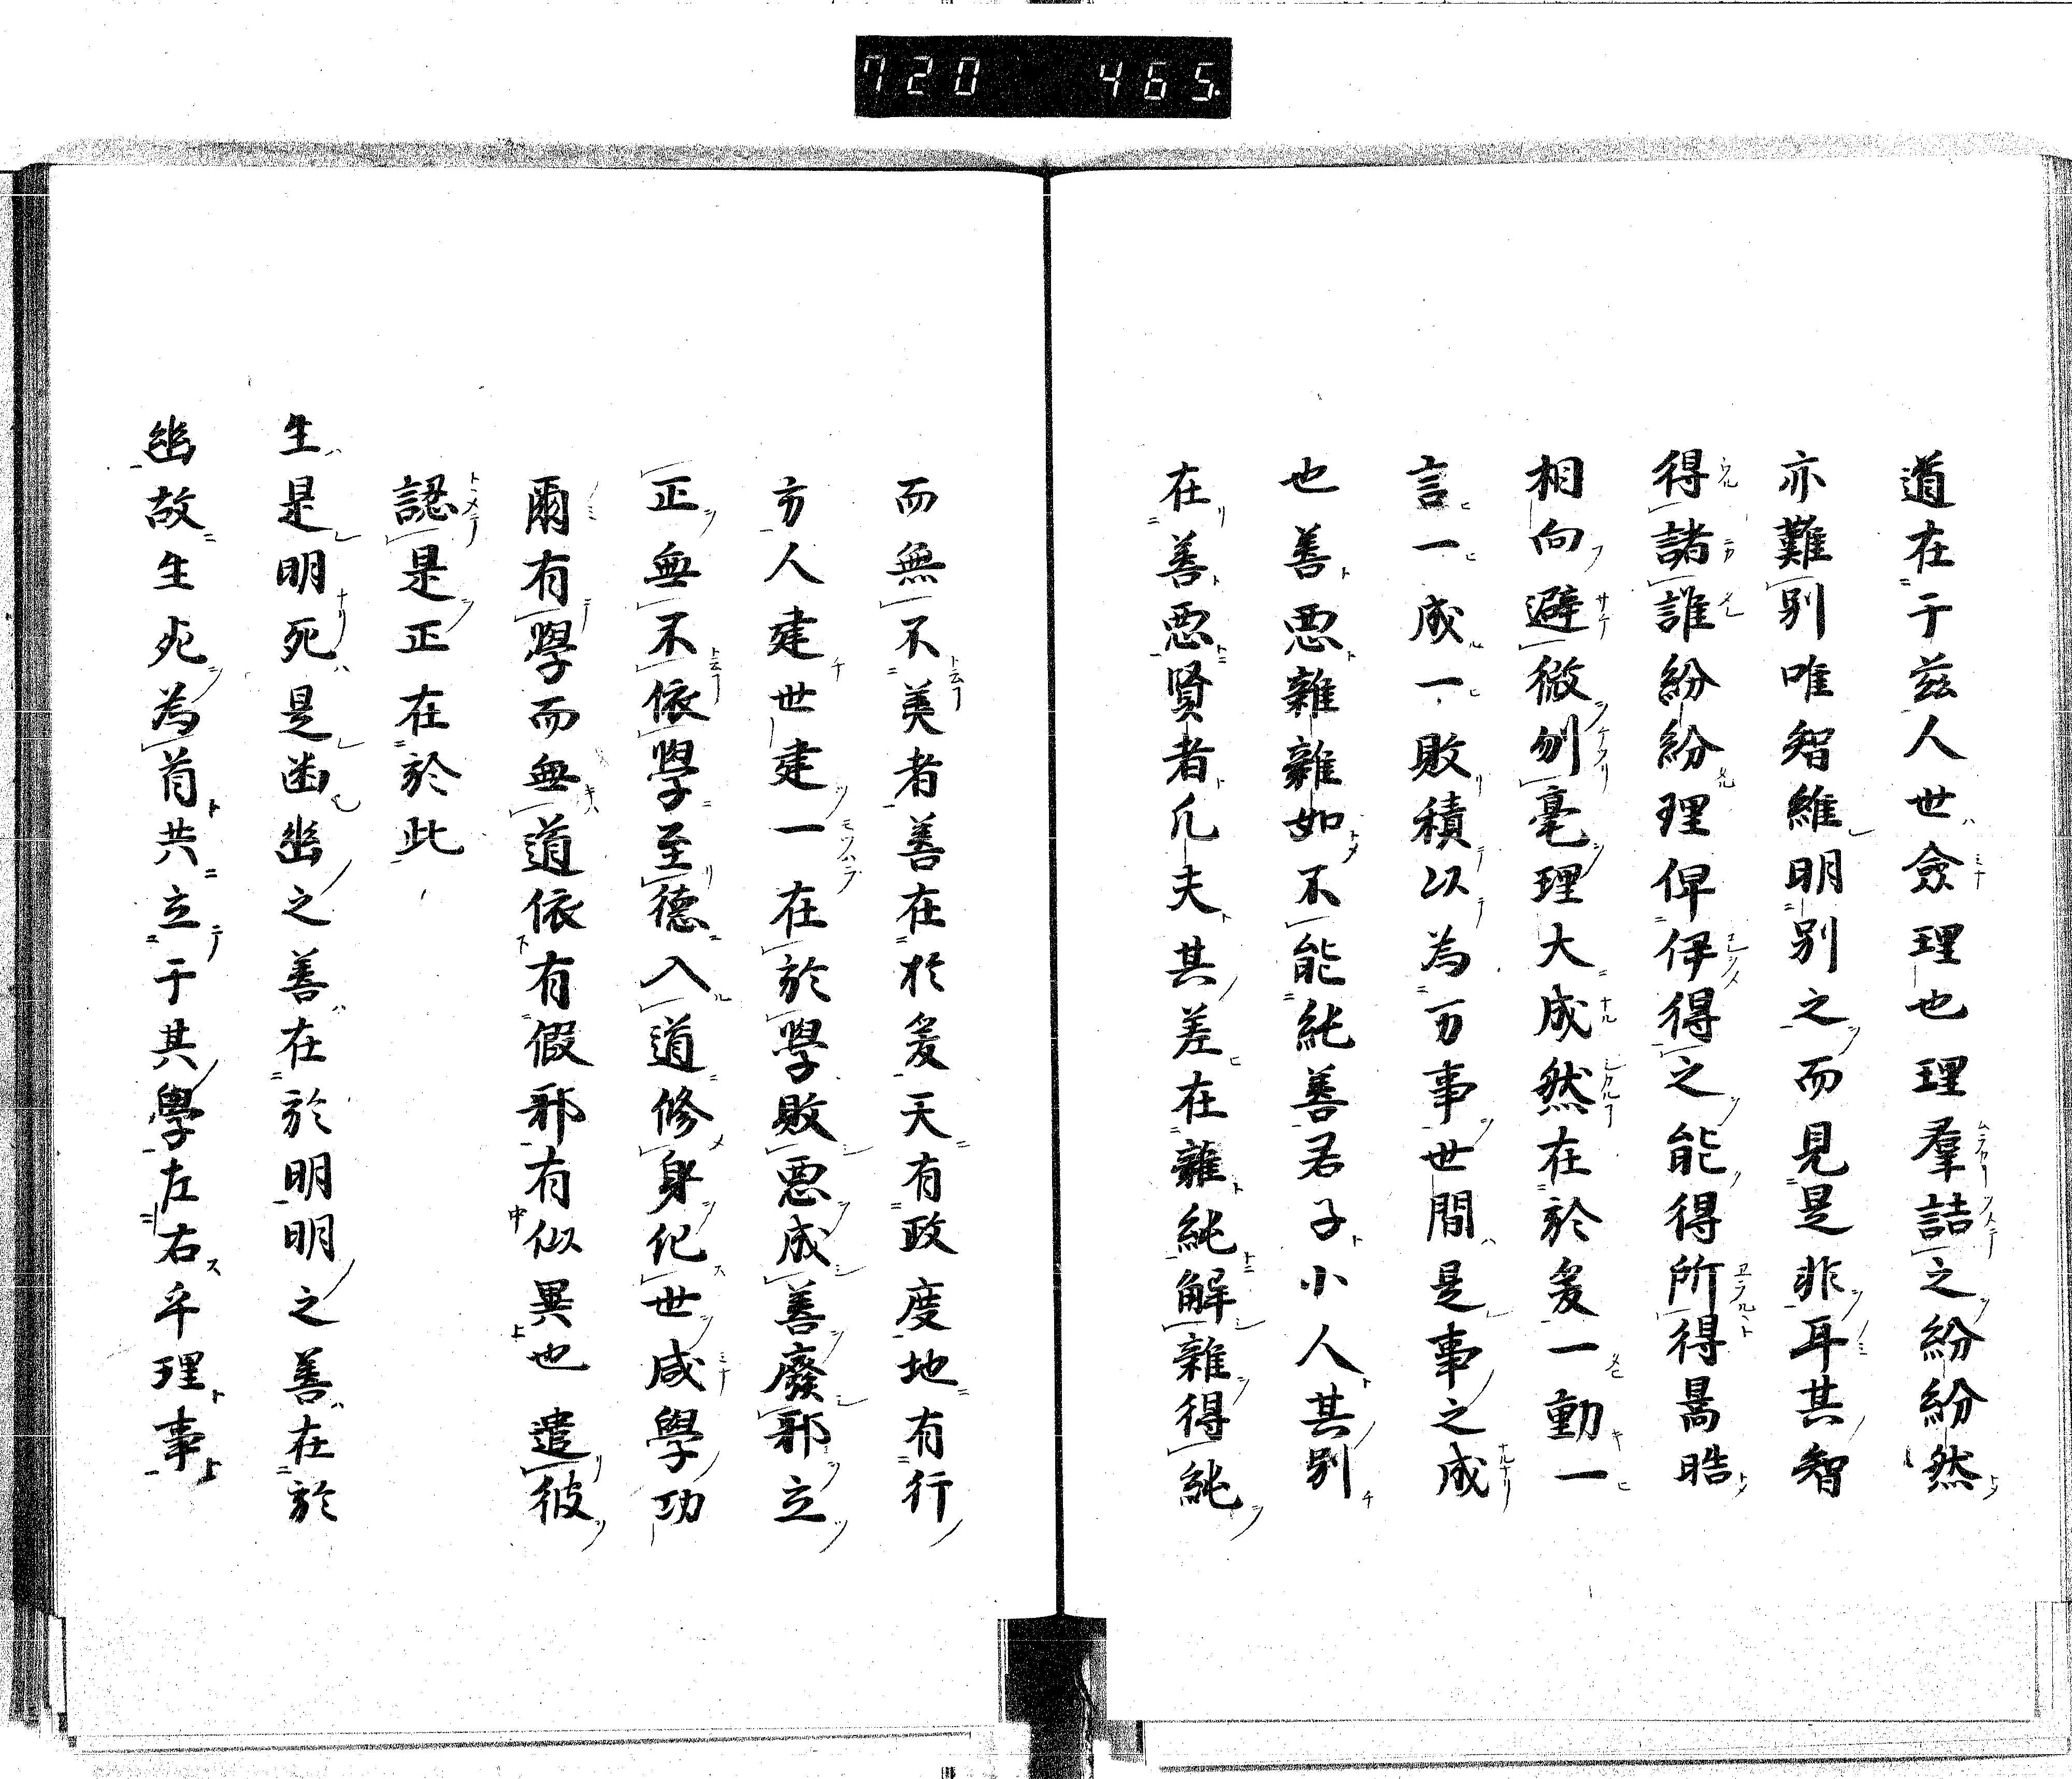 720 465
道在于茲人世僉理也理羣詰之紛紛然
亦難別唯智維明別之而見是非耳其智
得諸誰紛紛理俾伊得之能得所得暠晧
相向避微刎毫理大成然在於爰一動一
言一成一敗積以為万事世間是事之成
也善惡雜雜如不能純善君子小人其別
在善惡賢者凡夫其差在雜純解雜得純
而無不美者善在於爰天有政度地有行
方人建世建一在於學敗惡成善廢邪立
正無不依學至德入道修身化世咸學功
爾有學而無道依有假邪有似異也遣彼
認是正在於此
生是明死是幽幽之善在於明明之善在於
幽故生死為首共立于其學左右乎理事